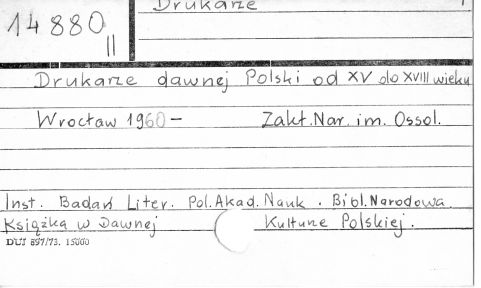 Drukarze
14880
II
Drukarze dawnej Polski od XV do XVIII wieku
Wrocław 1960- Zakt.Nar. im. Ossol.
Inst. Badań Liter. Pol.Akad.Nauk. Bibl.Narodowa.
Książka w Dawnej Kulturze Polskiej.
DUJ 897/73. 15000